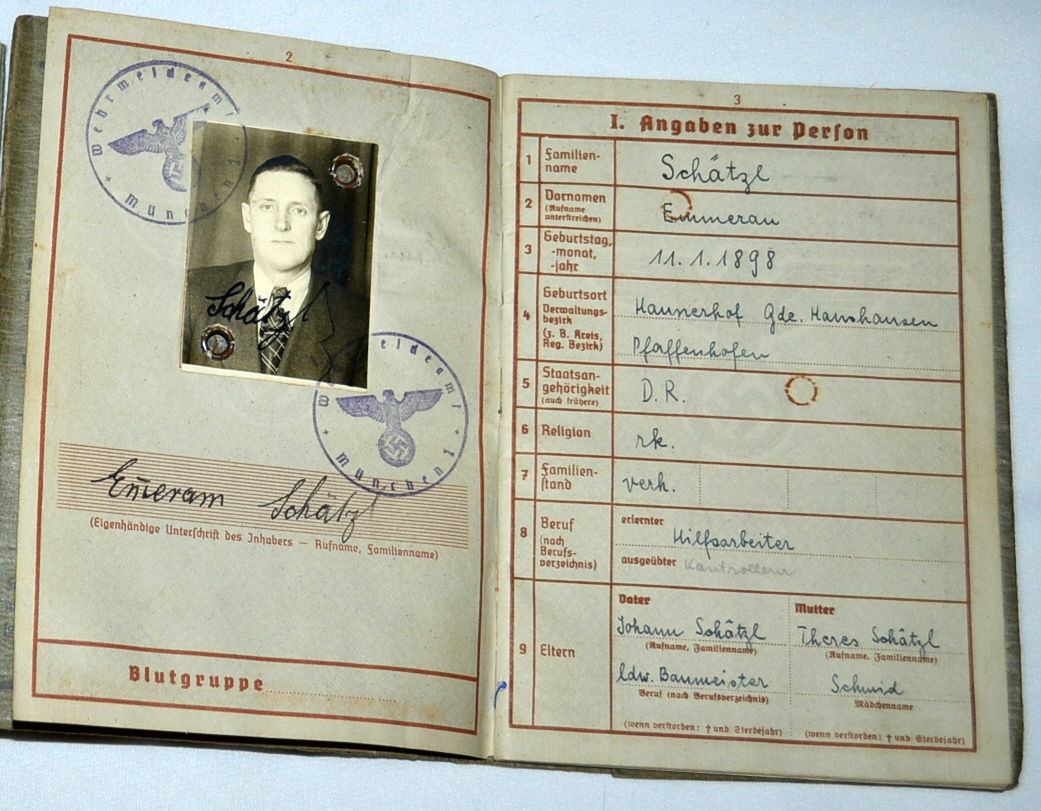 2
Wehrmeldeamt
München 1
Schätzl
Wehrmeldeamt
München 1
Emeram Schätzl
(Eigenhändige Unterschrift des Inhabers — Rufname, Familienname)
Blutgruppe
3
I. Angaben zur Person
1 Familien-
name
Schätzl
2 Vornamen
(Rufname
unterstreichen)
Emmeran
3 Geburtstag,
-monat,
-jahr
11. 1. 1898
4 Geburtsort
Verwaltungs-
bezirk
(z. B. Kreis,
Reg. Bezirk)
Haunerhof Gde. Hawshausen
Pfaffenhofen
5 Staatsan-
gehörigkeit
(auch frühere)
D. R.
6 Religion
rk.
7 Familien-
stand
verh.
8 Beruf
(nach
Berufs-
verzeichnis)
erlernter
Hilfsarbeiter
ausgeübter Kontrolleur
9 Eltern
Vater
Johann Schätzl
(Rufname, Familienname)
ldw. Baumeister
Beruf (nach Berufsverzeichnis)
(wenn verstorben: † und Sterbejahr)
Mutter
Theres Schätzl
(Rufname, Familienname)
Schmid
Mädchenname
(wenn verstorben: † und Sterbejahr)